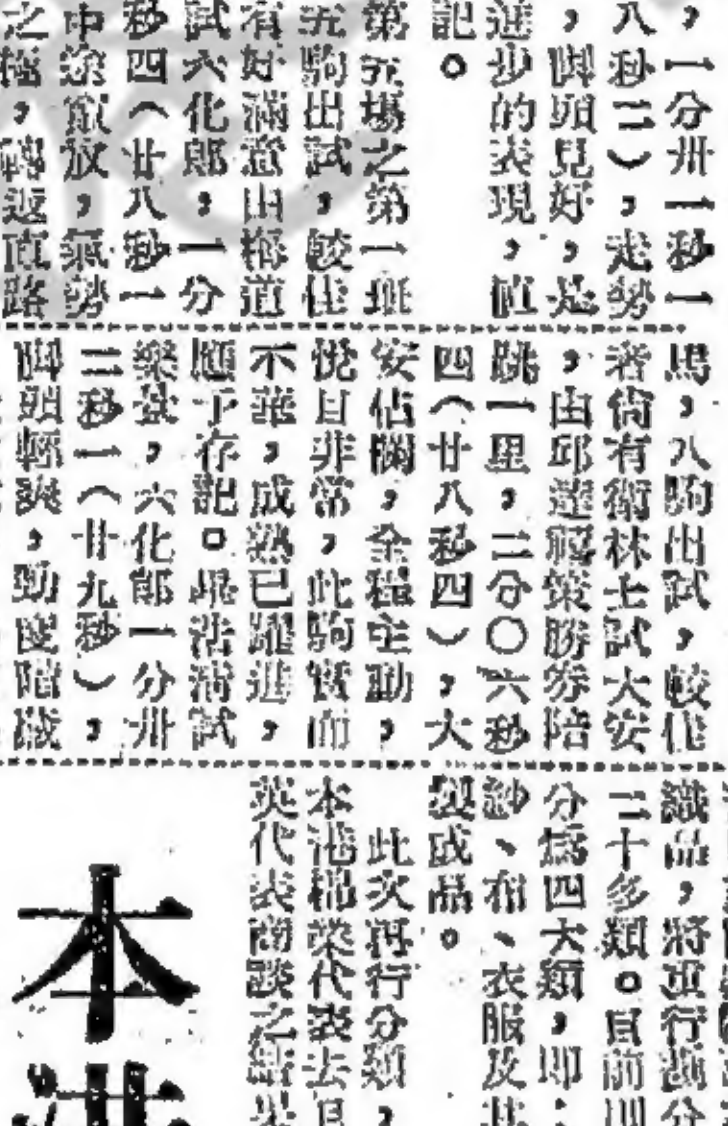 ，一分卅一秒一
八秒二），走勢
，脚頭見好，是
進步的表現，值
記。
第五場之第一班
五駒出試，較佳
有好滿意由梅道
試六化郎，一分
秒四（廿八秒一
中途寬放，氣勢
之極，轉返直路
馬，八駒出試，較佳
者尙有衛林士試大安
，由邱達禤策勝劵陪
跳一里，二分〇六秒
四（廿八秒四），大
安佔闌，全程主動，
悅目非常，此駒實而
不華，成熟已躍進，
應予存記。
試
樂盈，六化郎一分卅
二秒一（廿九秒），
脚頭輕爽，勁度
織品，將重行劃分
二十多類。目前則
分爲四大類，即：
紗、布、衣服及其
製成品。
此次再行分類，
本港棉業代表去月
英代表商談之結果
本港